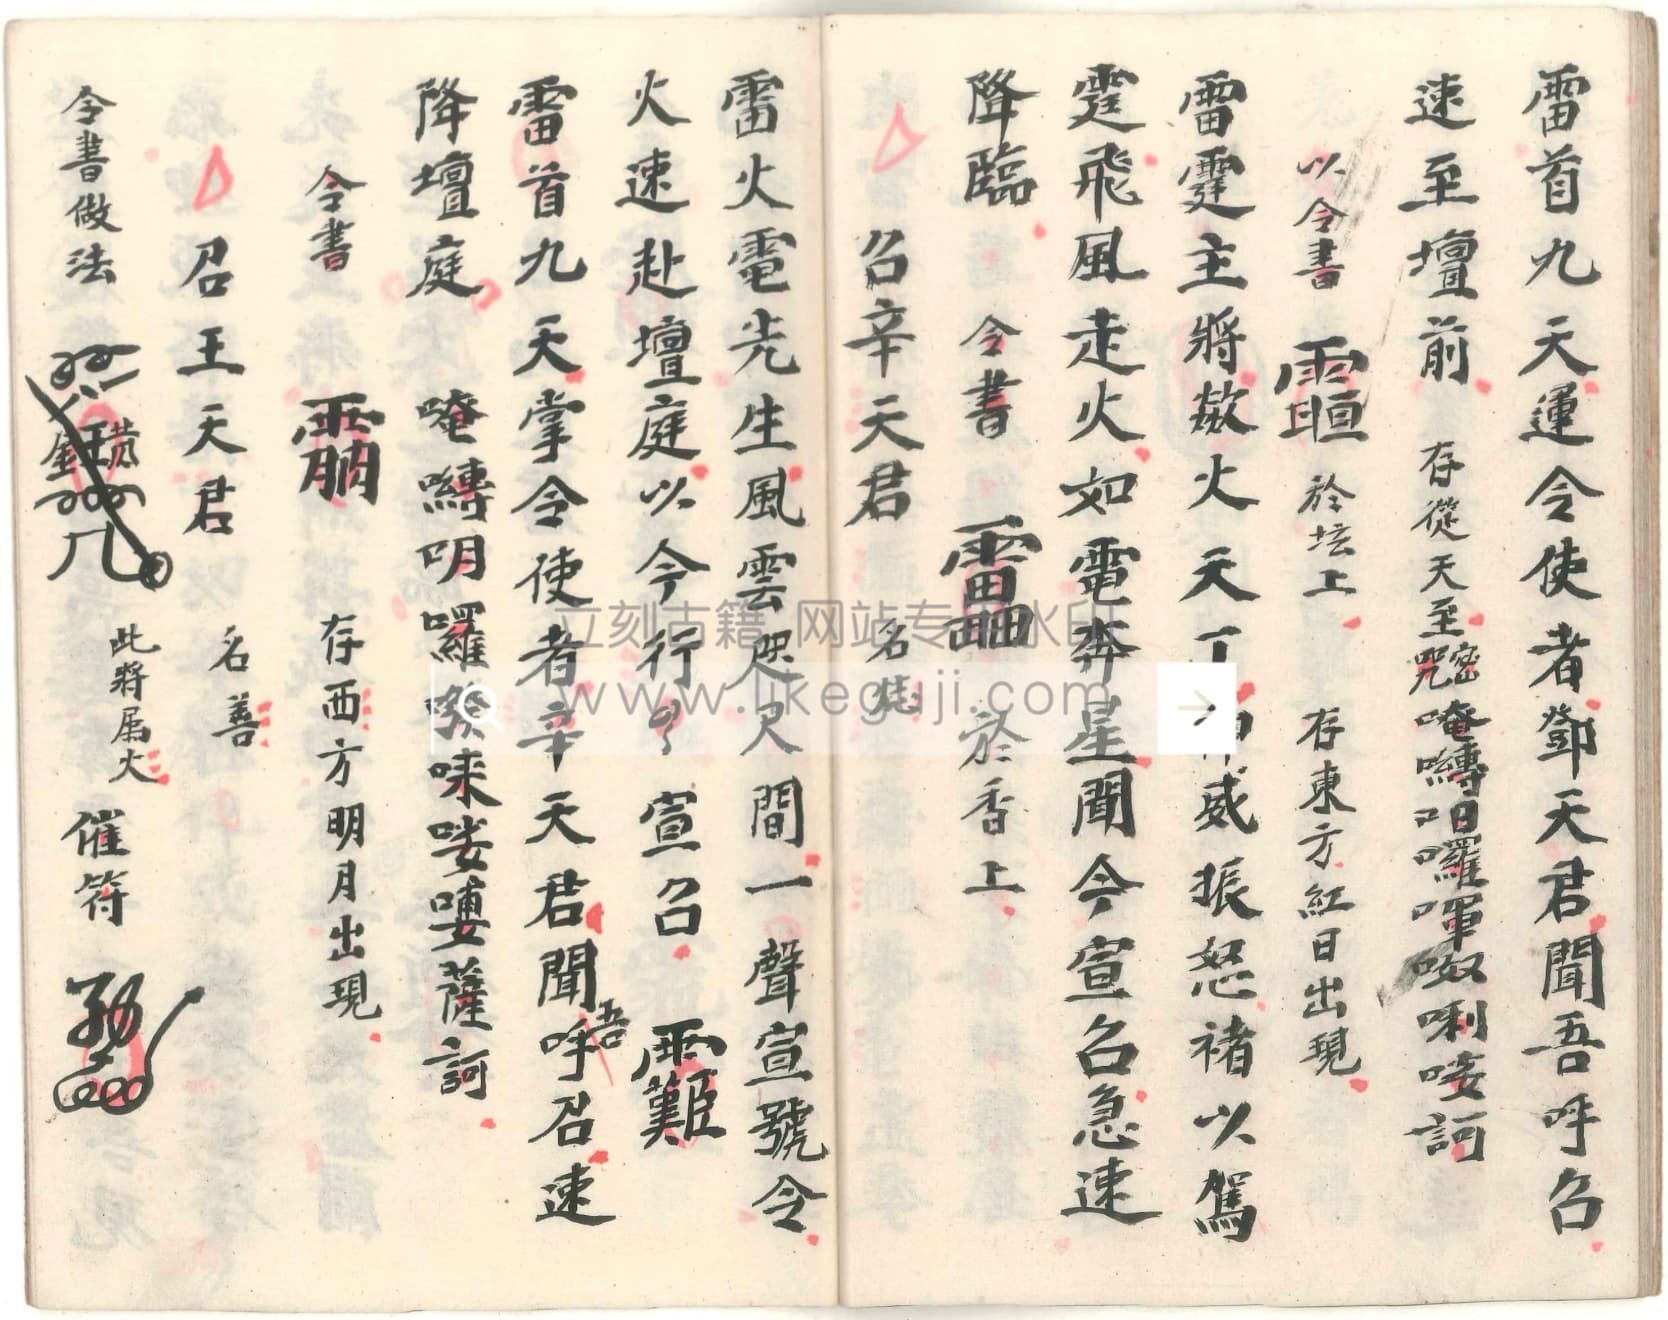 雷首九天運令使者鄧天君聞吾呼召
速至壇前 存從天至 密咒 唵囀呾囉喗呶唎唛訶
以令書 於坛上 存東方紅日出現
雷霆主將歘火天丁 威振怒褚以駕
霆飛風走火如電奔星聞令宣召急速
降臨 令書 於香上
召辛天君 名
雷火電先生風雲咫尺間一聲宣號令
火速赴壇庭以今行 宣召
雷首九天掌令使者辛天君聞吾呼召速
降壇庭 唵囀呬囉 唻唛嘜薩訶
令書 存西方明月出現
召王天君 名善
此將属火
令書做法 催符
立刻古籍 网站专用水印
www.likeguji.com